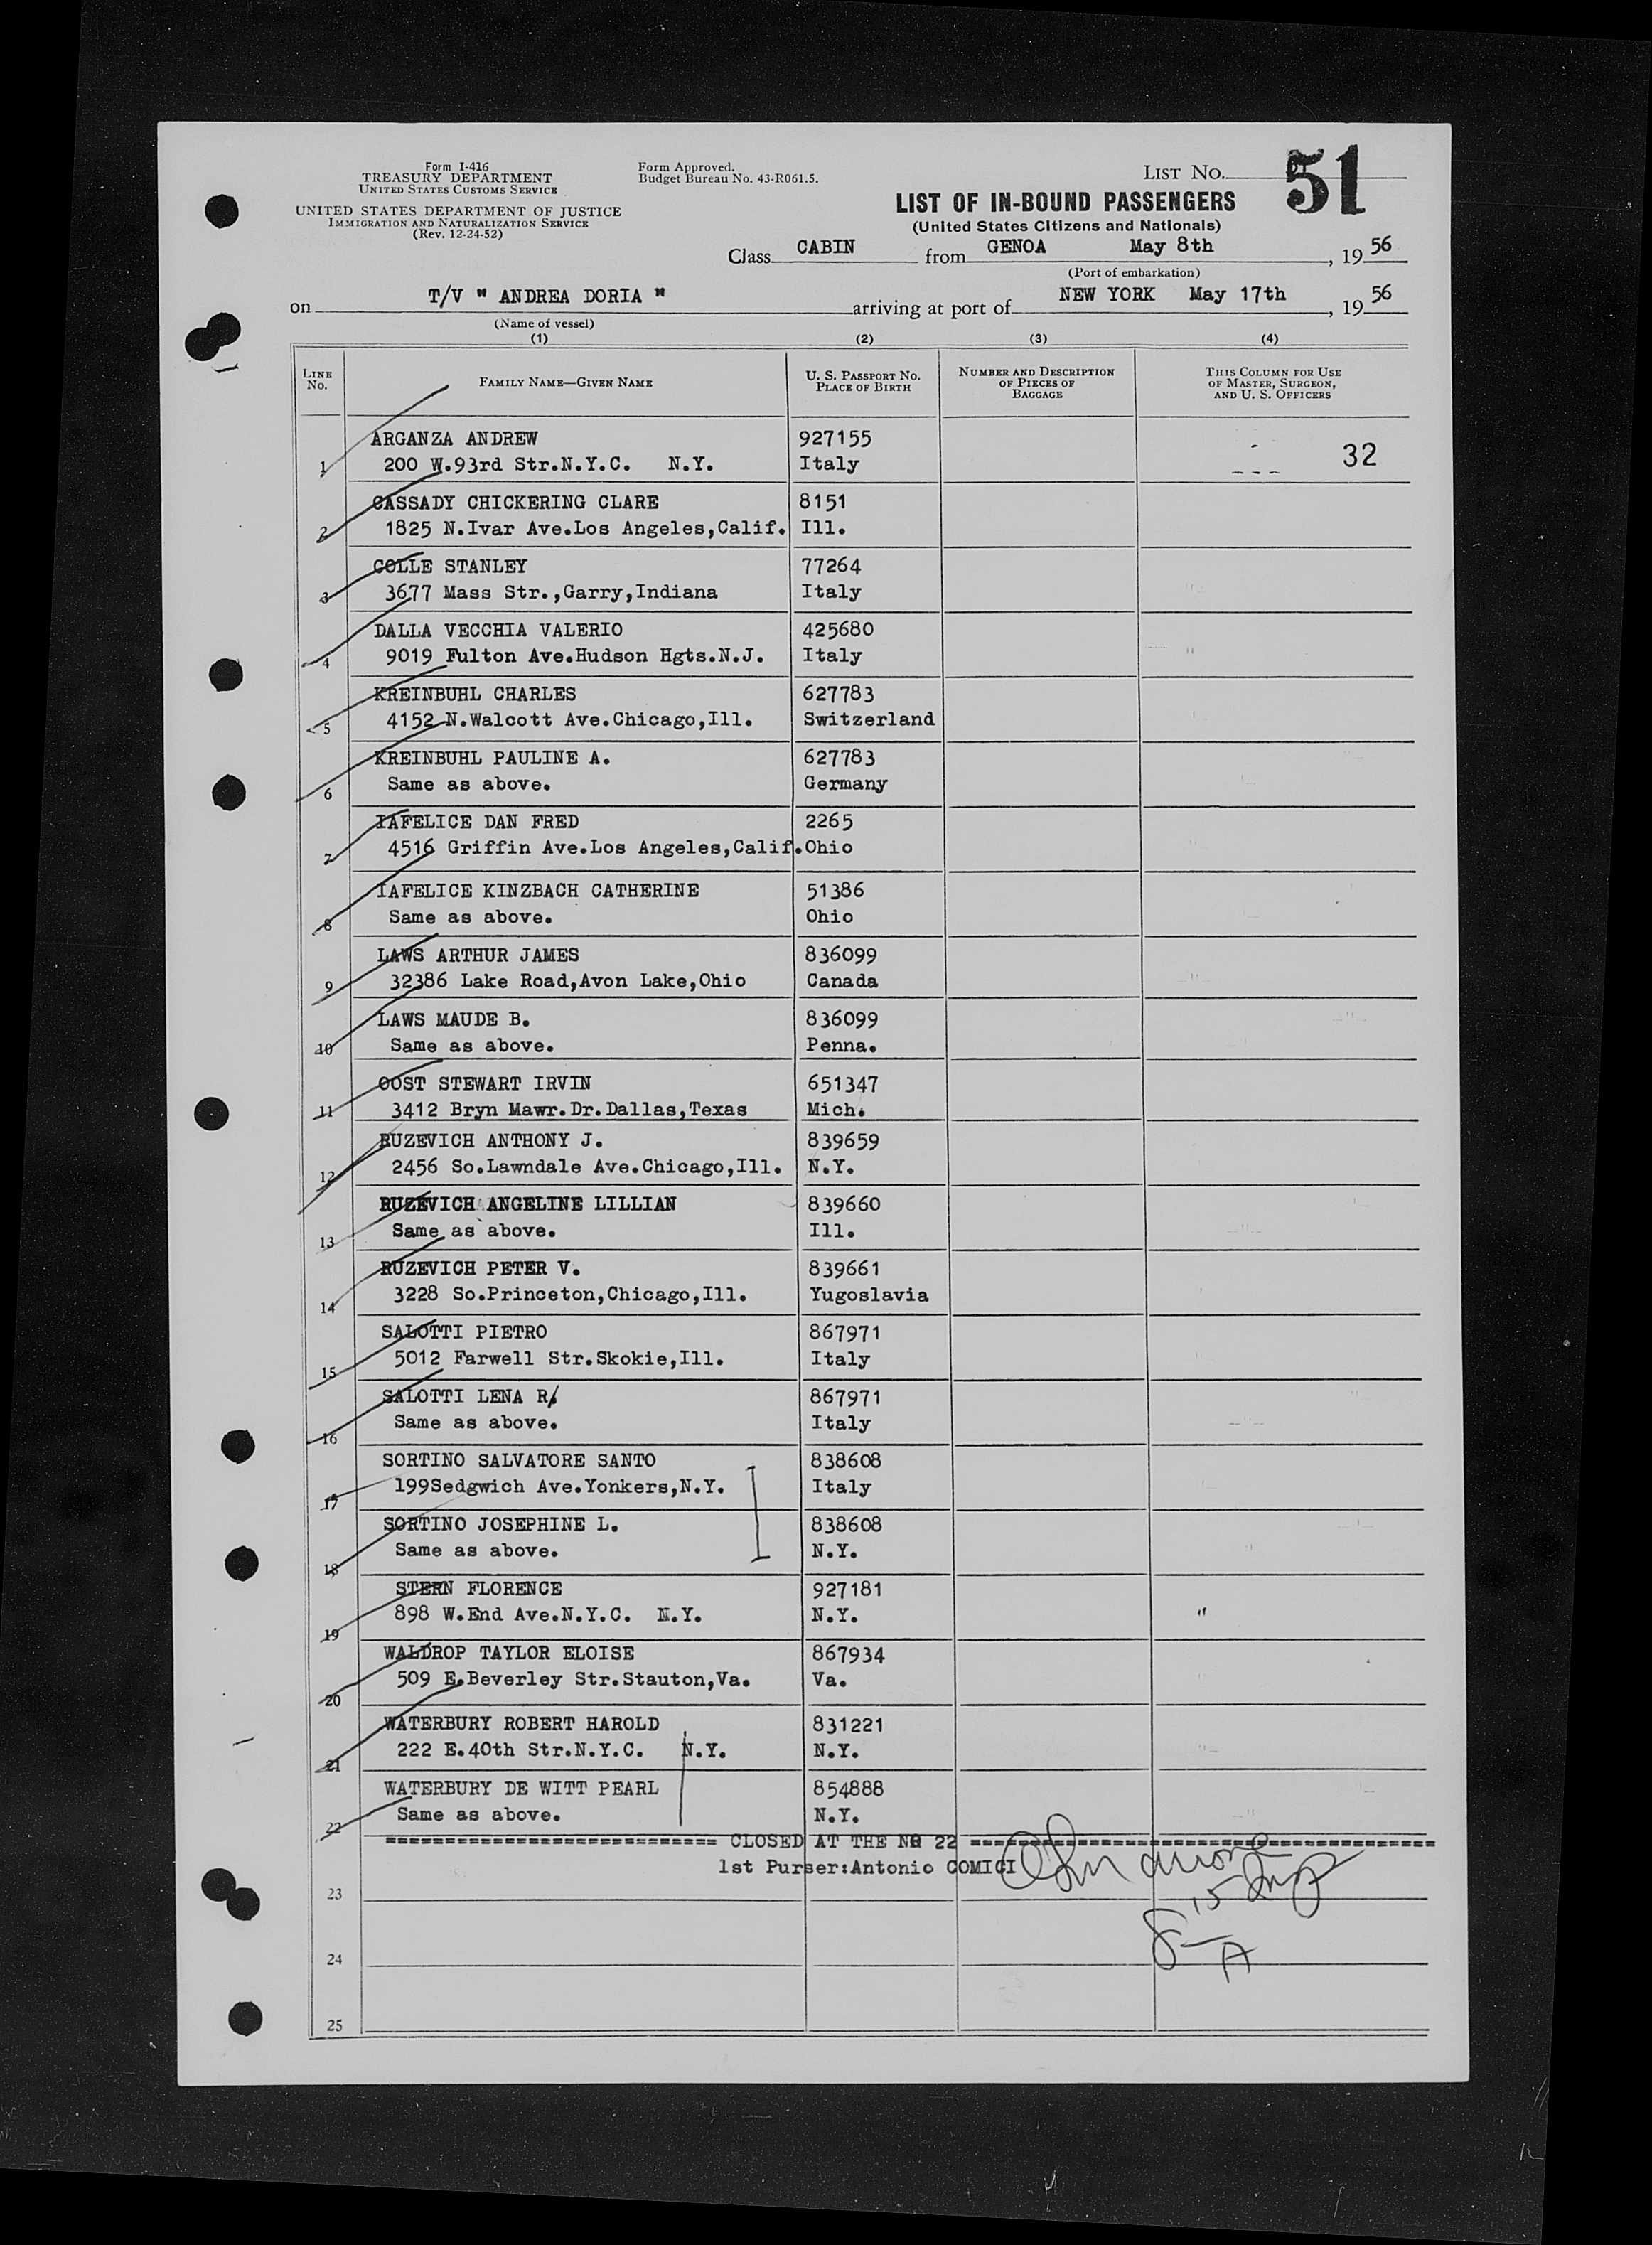 Form I-416
TREASURY DEPARTMENT
UNITED STATES CUSTOMS SERVICE
UNITED STATES DEPARTMENT OF JUSTICE
IMMIGRATION AND NATURALIZATION SERVICE
(Rev. 12-24-52)
Form Approved.
Budget Bureau No. 43-R061.5.
LIST NO. 51
LIST OF IN-BOUND PASSENGERS
(United States Citizens and Nationals)
Class CABIN from GENOA May 8th, 19 56
(Port of embarkation)
on T/V " ANDREA DORIA " arriving at port of NEW YORK May 17th, 19 56
(Name of vessel)
(1) (2) (3) (4)
LINE NO. FAMILY NAME—GIVEN NAME U. S. PASSPORT NO. PLACE OF BIRTH NUMBER AND DESCRIPTION OF PIECES OF BAGGAGE THIS COLUMN FOR USE OF MASTER, SURGEON, AND U. S. OFFICERS
ARGANZA ANDREW 927155
1 200 W.93rd Str.N.Y.C. N.Y. Italy 32
CASSADY CHICKERING CLARE 8151
2 1825 N.Ivar Ave.Los Angeles,Calif. Ill.
COLLE STANLEY 77264
3 3677 Mass Str.,Garry,Indiana Italy
DALLA VECCHIA VALERIO 425680
4 9019 Fulton Ave.Hudson Hgts.N.J. Italy
KREINBUHL CHARLES 627783
5 4152 N.Walcott Ave.Chicago,Ill. Switzerland
KREINBUHL PAULINE A. 627783
6 Same as above. Germany
IAFELICE DAN FRED 2265
7 4516 Griffin Ave.Los Angeles,Calif. Ohio
IAFELICE KINZBACH CATHERINE 51386
8 Same as above. Ohio
LAWS ARTHUR JAMES 836099
9 32386 Lake Road,Avon Lake,Ohio Canada
LAWS MAUDE B. 836099
10 Same as above. Penna.
OOST STEWART IRVIN 651347
11 3412 Bryn Mawr.Dr.Dallas,Texas Mich.
RUZEVICH ANTHONY J. 839659
12 2456 So.Lawndale Ave.Chicago,Ill. N.Y.
RUZEVICH ANGELINE LILLIAN 839660
13 Same as above. Ill.
RUZEVICH PETER V. 839661
14 3228 So.Princeton,Chicago,Ill. Yugoslavia
SALOTTI PIETRO 867971
15 5012 Farwell Str.Skokie,Ill. Italy
SALOTTI LENA R. 867971
16 Same as above. Italy
SORTINO SALVATORE SANTO 838608
17 199Sedgwich Ave.Yonkers,N.Y. Italy
SORTINO JOSEPHINE L. 838608
18 Same as above. N.Y.
STERN FLORENCE 927181
19 898 W.End Ave.N.Y.C. N.Y. N.Y. "
WALDROP TAYLOR ELOISE 867934
20 509 E.Beverley Str.Stauton,Va. Va.
WATERBURY ROBERT HAROLD 831221
21 222 E.40th Str.N.Y.C. N.Y. N.Y.
WATERBURY DE WITT PEARL 854888
22 Same as above. N.Y.
=========================== CLOSED AT THE No 22 ======================================
1st Purser:Antonio COMICI
23
15
8 - A
24
25